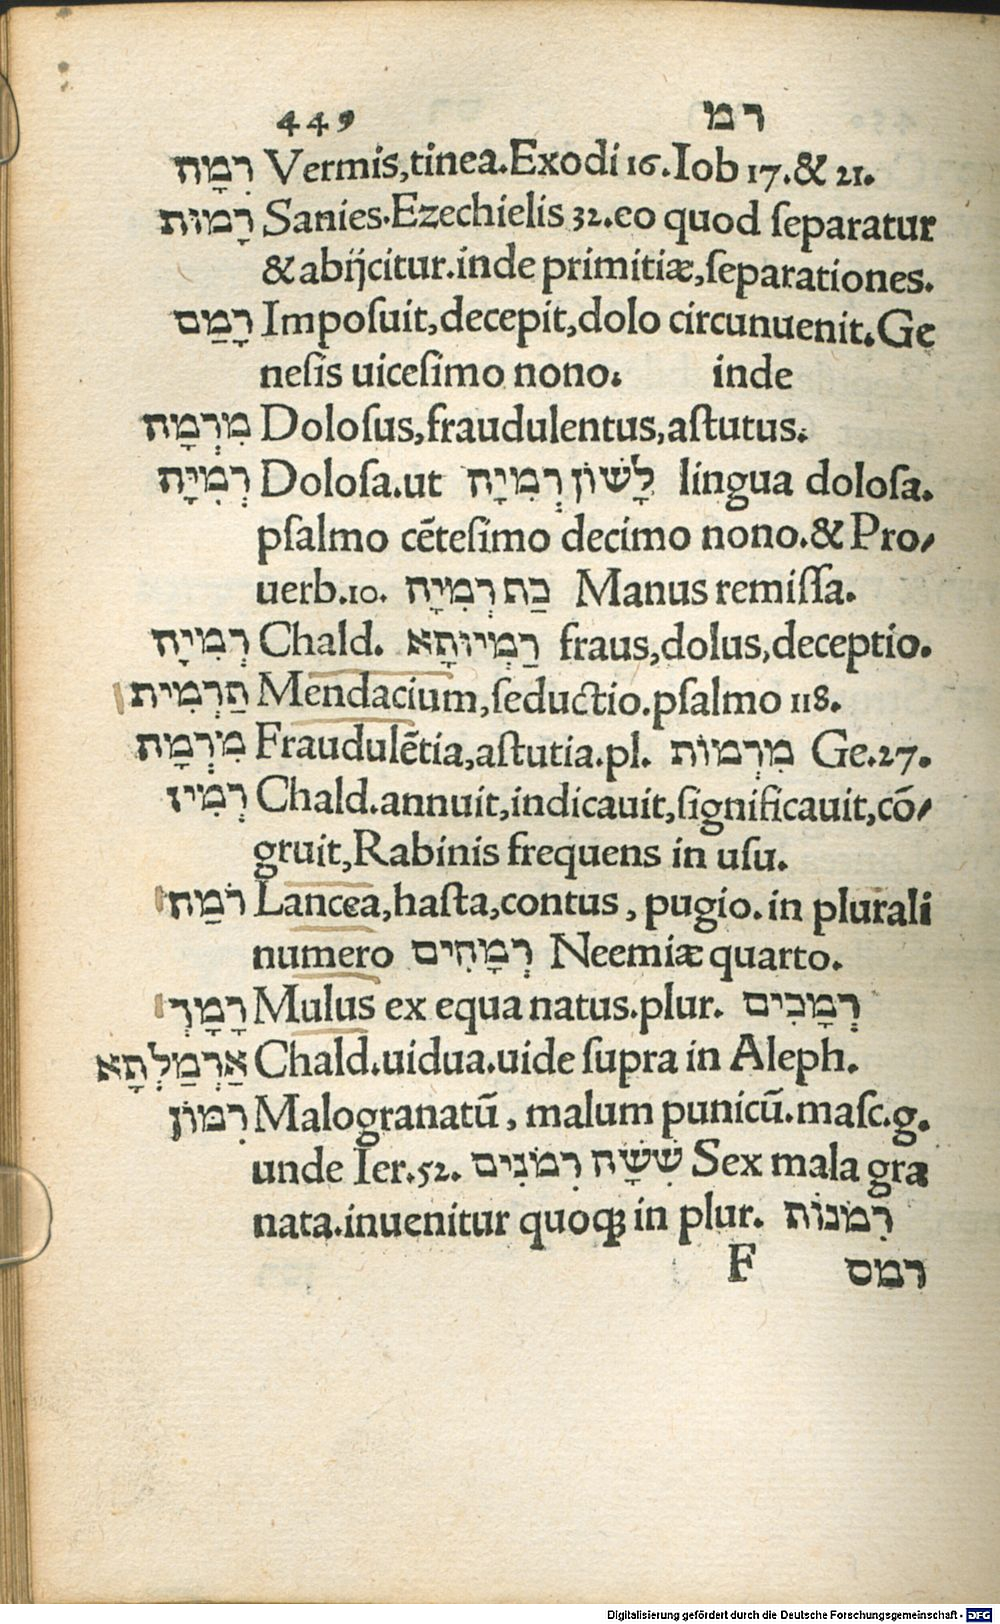 449 רמ
רִמָּה Vermis,tinea.Exodi 16.Iob 17.& 21.
רָמוּת Sanies.Ezechielis 32.eo quod ſeparatur
& abijcitur.inde primitiæ,ſeparationes.
רָמַם Impoſuit,decepit,dolo circunuenit.Ge
neſis uiceſimo nono. inde
מִרְמָה Doloſus,fraudulentus,aſtutus.
רְמִיָּה Doloſa.ut לָשׁוֹן רְמִיָּה lingua doloſa.
pſalmo cẽteſimo decimo nono.& Pro/
uerb.10. כַּת רְמִיָּה Manus remiſſa.
רְמִיָּה Chald. רַמְיוּתָא fraus,dolus,deceptio.
תַרְמִית Mendacium,ſeductio.pſalmo 118.
מִרְמָה Fraudulẽtia,aſtutia.pl. מִרְמוֹת Ge.27.
רְמִיז Chald.annuit,indicauit,ſignificauit,cõ/
gruit,Rabinis frequens in uſu.
רֹמַח Lancea,haſta,contus, pugio.in plurali
numero רְמָחִים Neemiæ quarto.
רָמָךְ Mulus ex equa natus.plur. רְמָכִים
אַרְמַלְתָא Chald.uidua.uide ſupra in Aleph.
רִמּוֹן Malogranatũ, malum punicũ.maſc.g.
unde Ier.52. שִׁשָּׁה רִמֹּנִים Sex mala gra
nata.inuenitur quoqꝫ in plur. רִמֹּנוֹת
F רמס
Digitalisierung gefördert durch die Deutsche Forschungsgemeinschaft - DFG